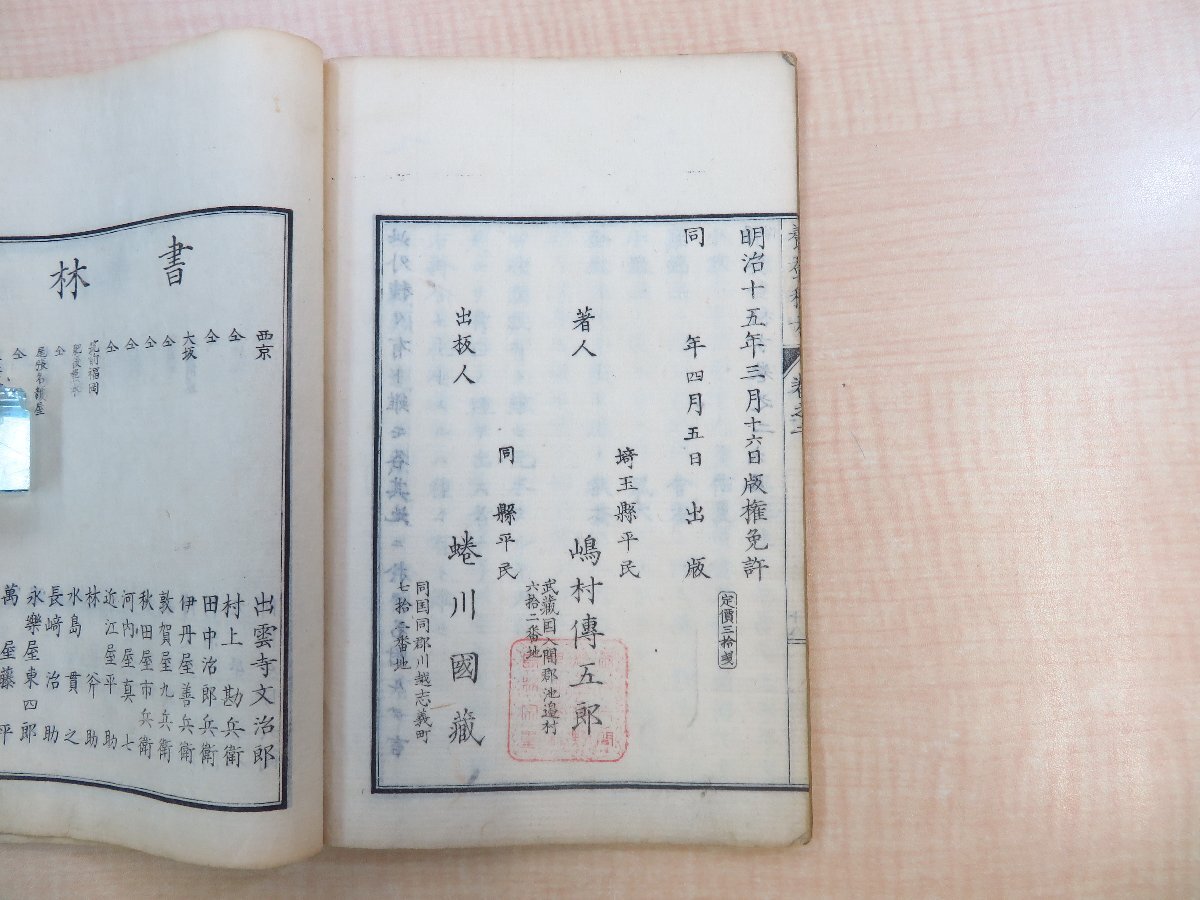 明治十五年三月十六日版權免許
定價三拾錢
同年四月五日出版
埼玉縣平民
著人 嶋村傳五郎
武藏国入間郡池邉村
六拾二番地
同縣平民
出板人 蜷川國藏
同国同郡川越志義町
七拾一番地
書林
西京 出雲寺文治郎
仝 村上勘兵衛
仝 田中治郎兵衛
大坂 伊丹屋善兵衛
仝 敦賀屋九兵衛
仝 秋田屋市兵衛
仝 河内屋真七
仝 近江屋平助
筑前福岡 林斧助
肥後熊本 水島貫之
仝 長崎治助
尾張名護屋 永樂屋東四郎
仝 萬屋藤平